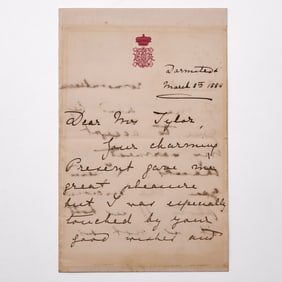 Darmstadt
March 8th 1884
Dear Mrs Tylor,
Your charming
Present gave me
great pleasure
but I was especially
touched by your
good wishes and